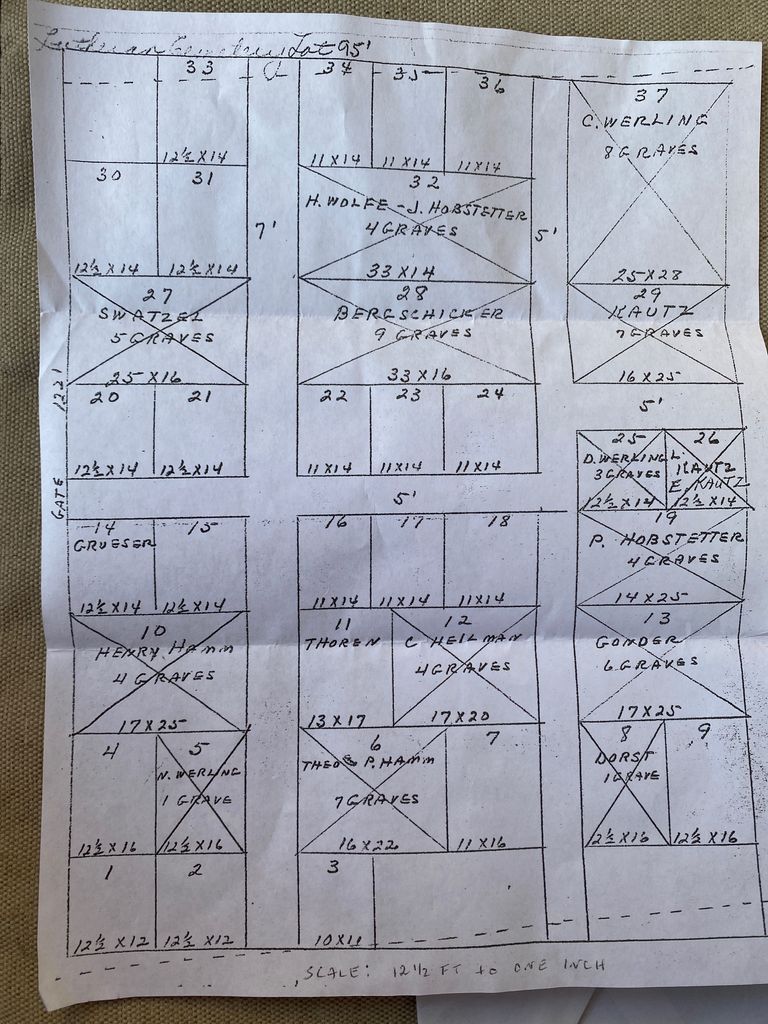 Lutheran Cemetery Lot 95'
33 34 35 36
12½ X 14 11 X 14 11 X 14 11 X 14
37
C. WERLING
8 GRAVES
25 X 28
30 31
12½ X 14 12½ X 14
7'
32
H. WOLFE - J. HOBSTETTER
4 GRAVES
33 X 14
5'
27
SWATZEL
5 GRAVES
25 X 16
28
BERGSCHICKER
9 GRAVES
33 X 16
29
KAUTZ
7 GRAVES
16 X 25
GATE 122'
20 21
12½ X 14 12½ X 14
22 23 24
11 X 14 11 X 14 11 X 14
5'
25
D. WERLING
3 GRAVES
12½ X 14
26
L. KAUTZ
E. KAUTZ
12½ X 14
5'
14 15
GRUESER
12½ X 14 12½ X 14
16 17 18
11 X 14 11 X 14 11 X 14
19
P. HOBSTETTER
4 GRAVES
14 X 25
10
HENRY HAMM
4 GRAVES
17 X 25
11
THOREN
13 X 17
12
C HEILMAN
4 GRAVES
17 X 20
13
GONDER
6 GRAVES
17 X 25
4
12½ X 16
5
N. WERLING
1 GRAVE
12½ X 16
6
P. HAMM
7 GRAVES
16 X 22
7
11 X 16
8
DORST
1 GRAVE
2½ X 16
9
12½ X 16
1 2
12½ X 12 12½ X 12
3
SCALE: 12 1/2 FT to ONE INCH